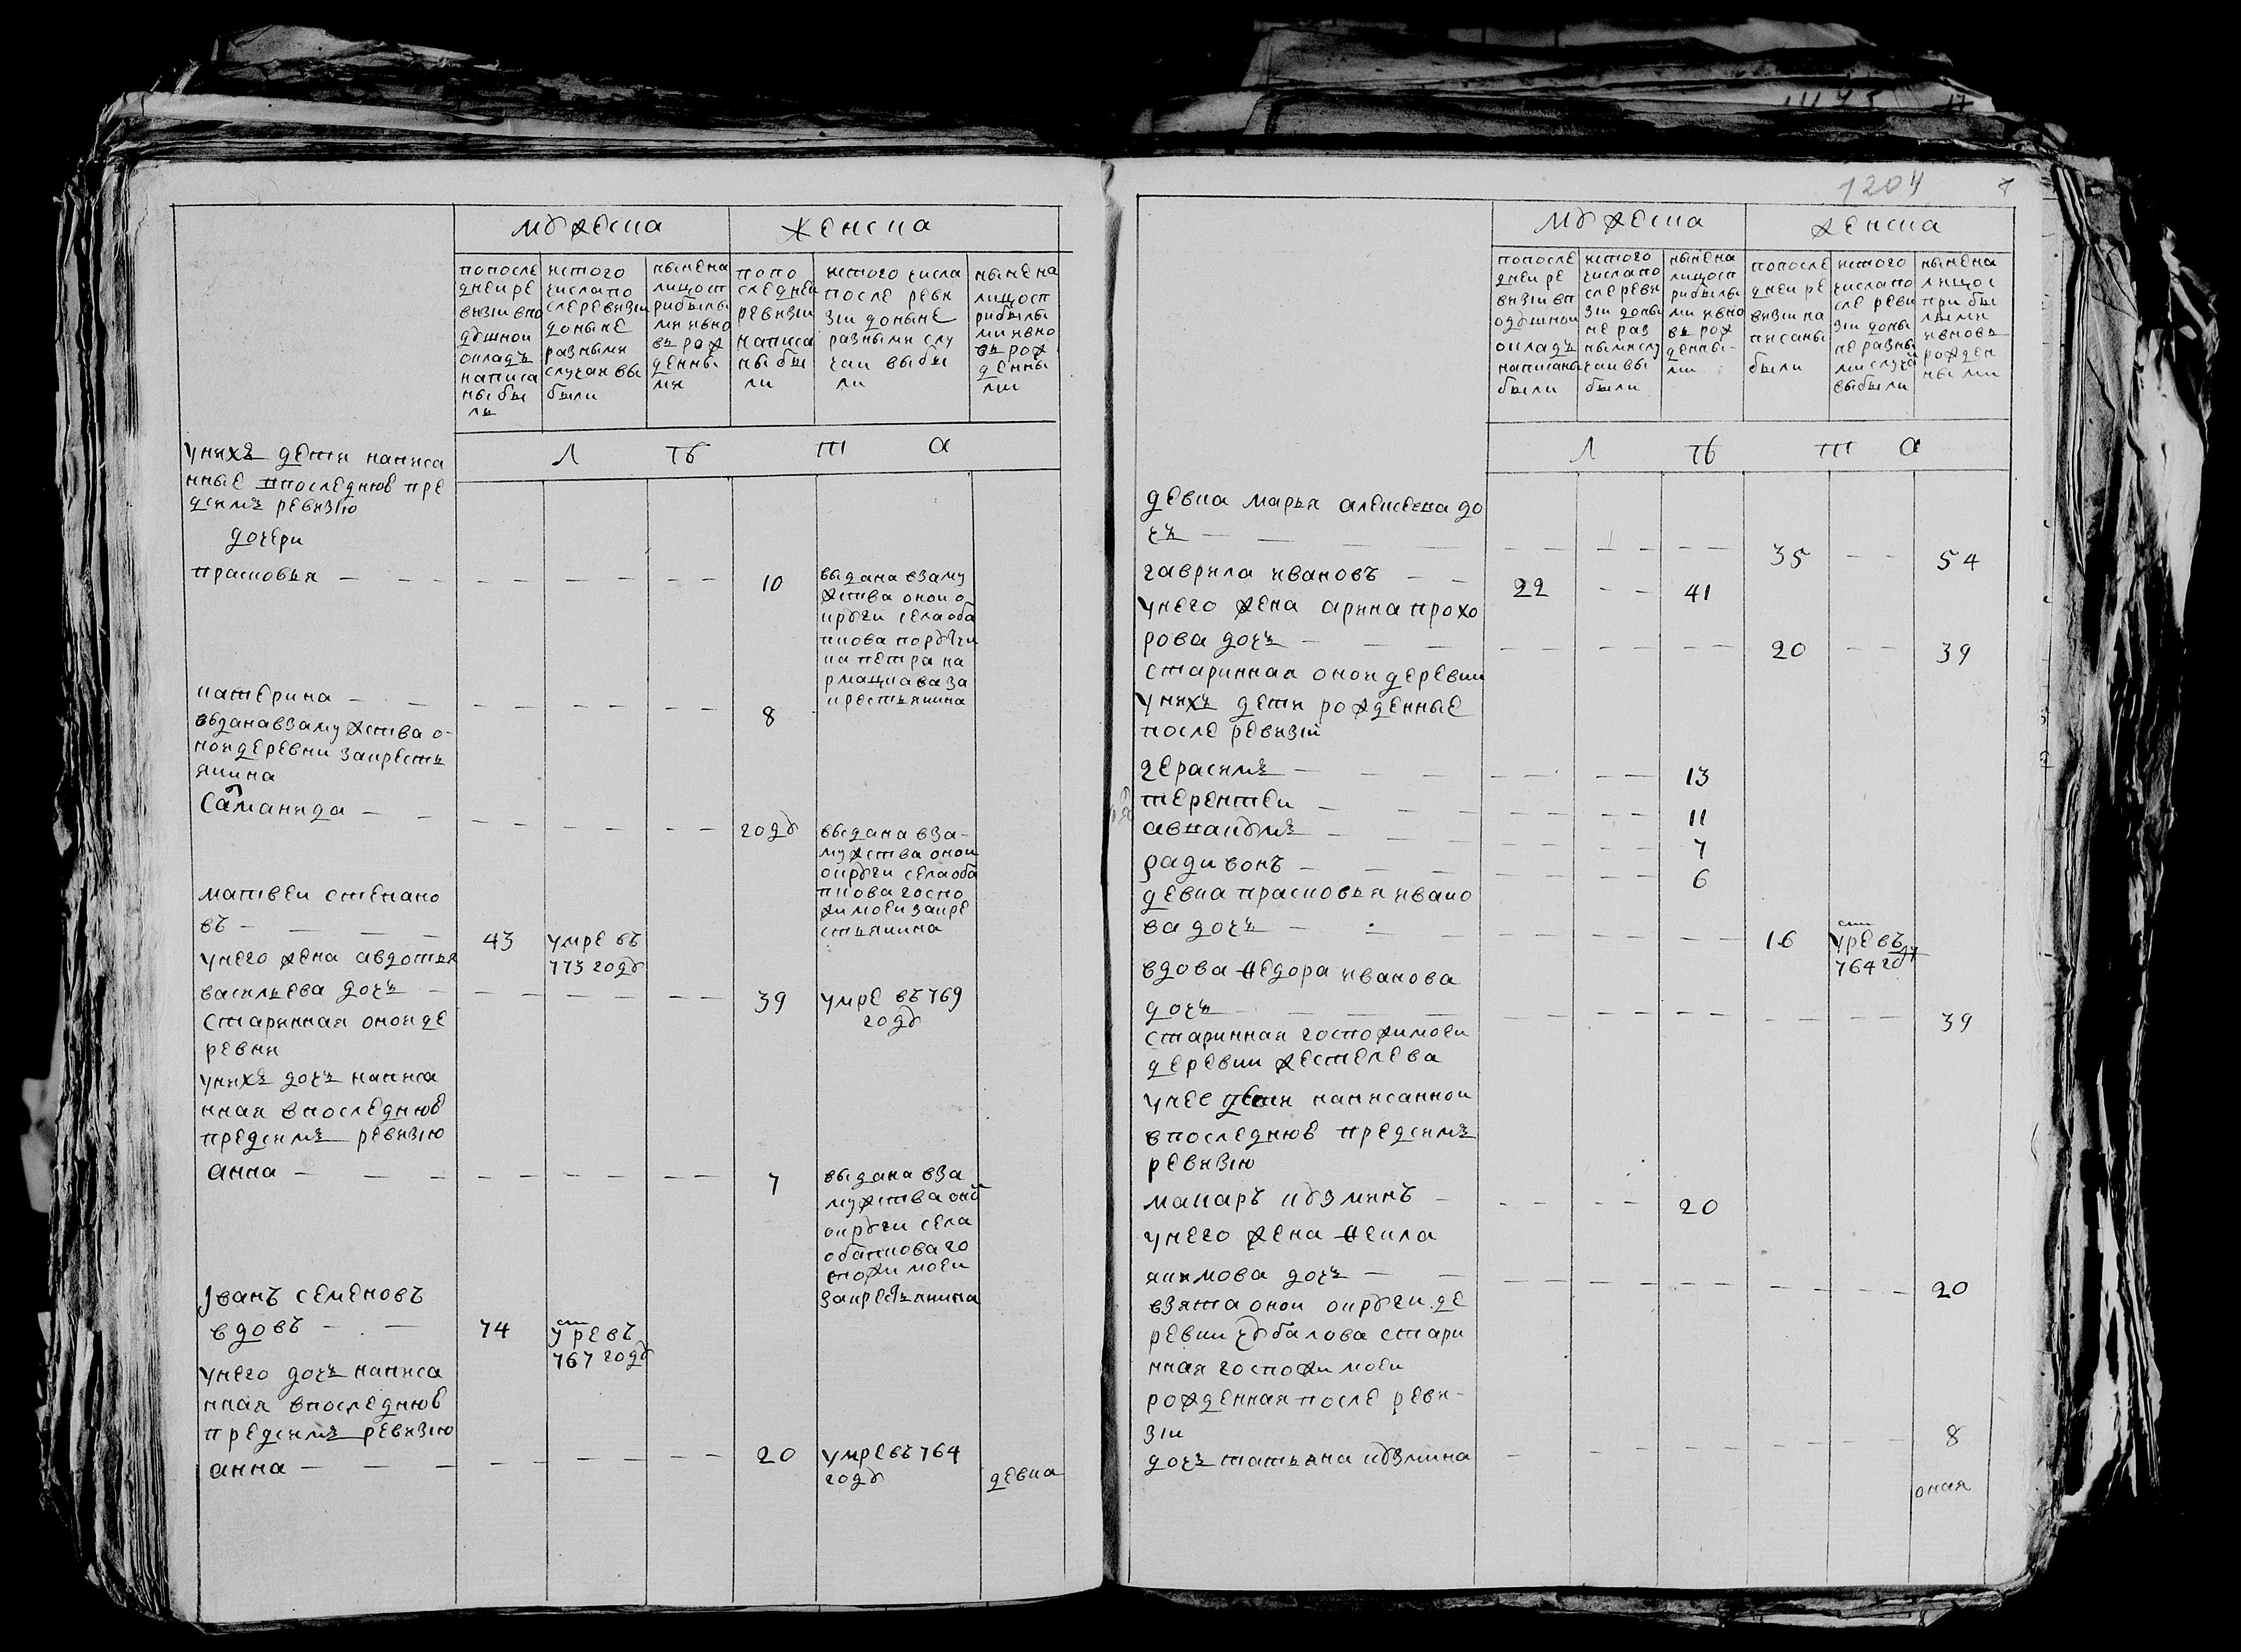 мужеска
женска
попосле
дней ре
визiи впо
душнои
окладъ
написа
ны бы
ль
истого
числа по
слеревизiи
доныне
разными
случаи вы
были
ныне на
лицо сп
рибылы
ми ивно
въ рож
денны
ми
попо
следнеи
ревизiи
написа
ны бы
ли
истого числа
после реви
зiи доныне
разными слу
чаи выбы
ли
ныне на
лицо сп
рибылы
ми ивно
въ рож
денны
ми
Л ѣ т а
у нихъ дети написа
нные впоследнюю пре
дсимъ ревизiю
дочери
прасковья — — — — — — 10 выдана взаму
жства онои о
круги села оба
пкова поручи
ка петра ка
рмацкава за
крестьянина
катерина — — — — — — 8
выдана взамужства о-
нои деревни закресть
янина
саманида — — — — — — году выдана вза-
мужства онои
округи села оба
пкова госпо
жи моеи закре
стьянина
матвеи степано
въ — — — — 43 умре въ
773 году
у него жена авдотья
васильева дочь — — — — — — 39 умре въ 769
году
старинная онои де
ревни
у нихъ дочь написа
нная впоследнюю
предсимъ ревизiю
анна — — — — — — 7 выдана вза
мужства онои
округи села
обапкова го
спожи моеи
закрестьянина
Iванъ семеновъ
вдовъ — — 74 умре въ
767 году
у него дочь написа
нная впоследнюю
предсимъ ревизiю
анна — — — — — — 20 умре въ 764
году
девка
1204
мужеска
женска
попосле
днеи ре
визiи вп
одушнои
окладъ
написаны
были
истого
числа по
сле реви
зiи доны
не раз
ными слу
чаи вы
были
ныне на
лицо сп
рибылы
ми ивно
въ рож
денны-
ми
попосле
днеи ре
визiи на
писаны
были
истого
числа по
сле реви
зiи доны
не разны
ми случа
выбыли
ныне на
лицо с
при бы
лыми
ивновь
рожден
ны ми
Л ѣ т а
девка марья алексеева до
чь — — — — — — 35 — — 54
гаврила ивановъ — — 22 — — 41
у него жена арина прохо
рова дочь — — — — — — 20 — — 39
старинная онои деревни
у нихъ дети рожденные
после ревизiи
герасимъ — — — — 13
терентеи — — — — 11
авнакумъ — — — — 7
радивонъ — — — — 6
девка прасковья ивано
ва дочь — — — — — — 16 умре въ
764 году
вдова Ѳедора иванова
дочь — — — — — — 39
старинная госпожи моеи
деревни жестелева
у нее дети написаннои
впоследнюю предсимъ
ревизiю
макаръ кузминъ — — — — 20
у него жена Ѳекла
якимова дочь — — — — — — 20
взята онои округи де
ревни чубалова стари
нная госпожи моеи
рожденная после реви-
зiи
дочь татьяна кузмина — — — — — — 8
оная